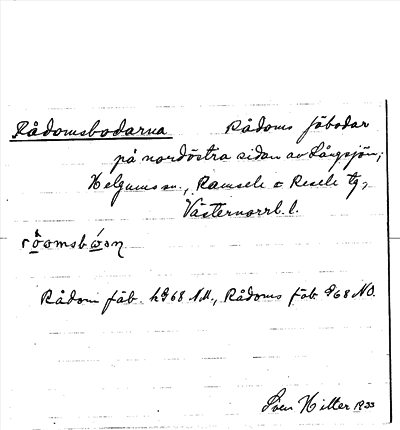 Rådomsbodarna Rådoms fäbodar
på nordöstra sidan av Långsjön;
Helgums sn., Ramsele o Resele tg,
Västernorrl. l.
Rådom fäb. 68 NO., Rådoms fäb. 68 NO.
Sven Hitter 1933